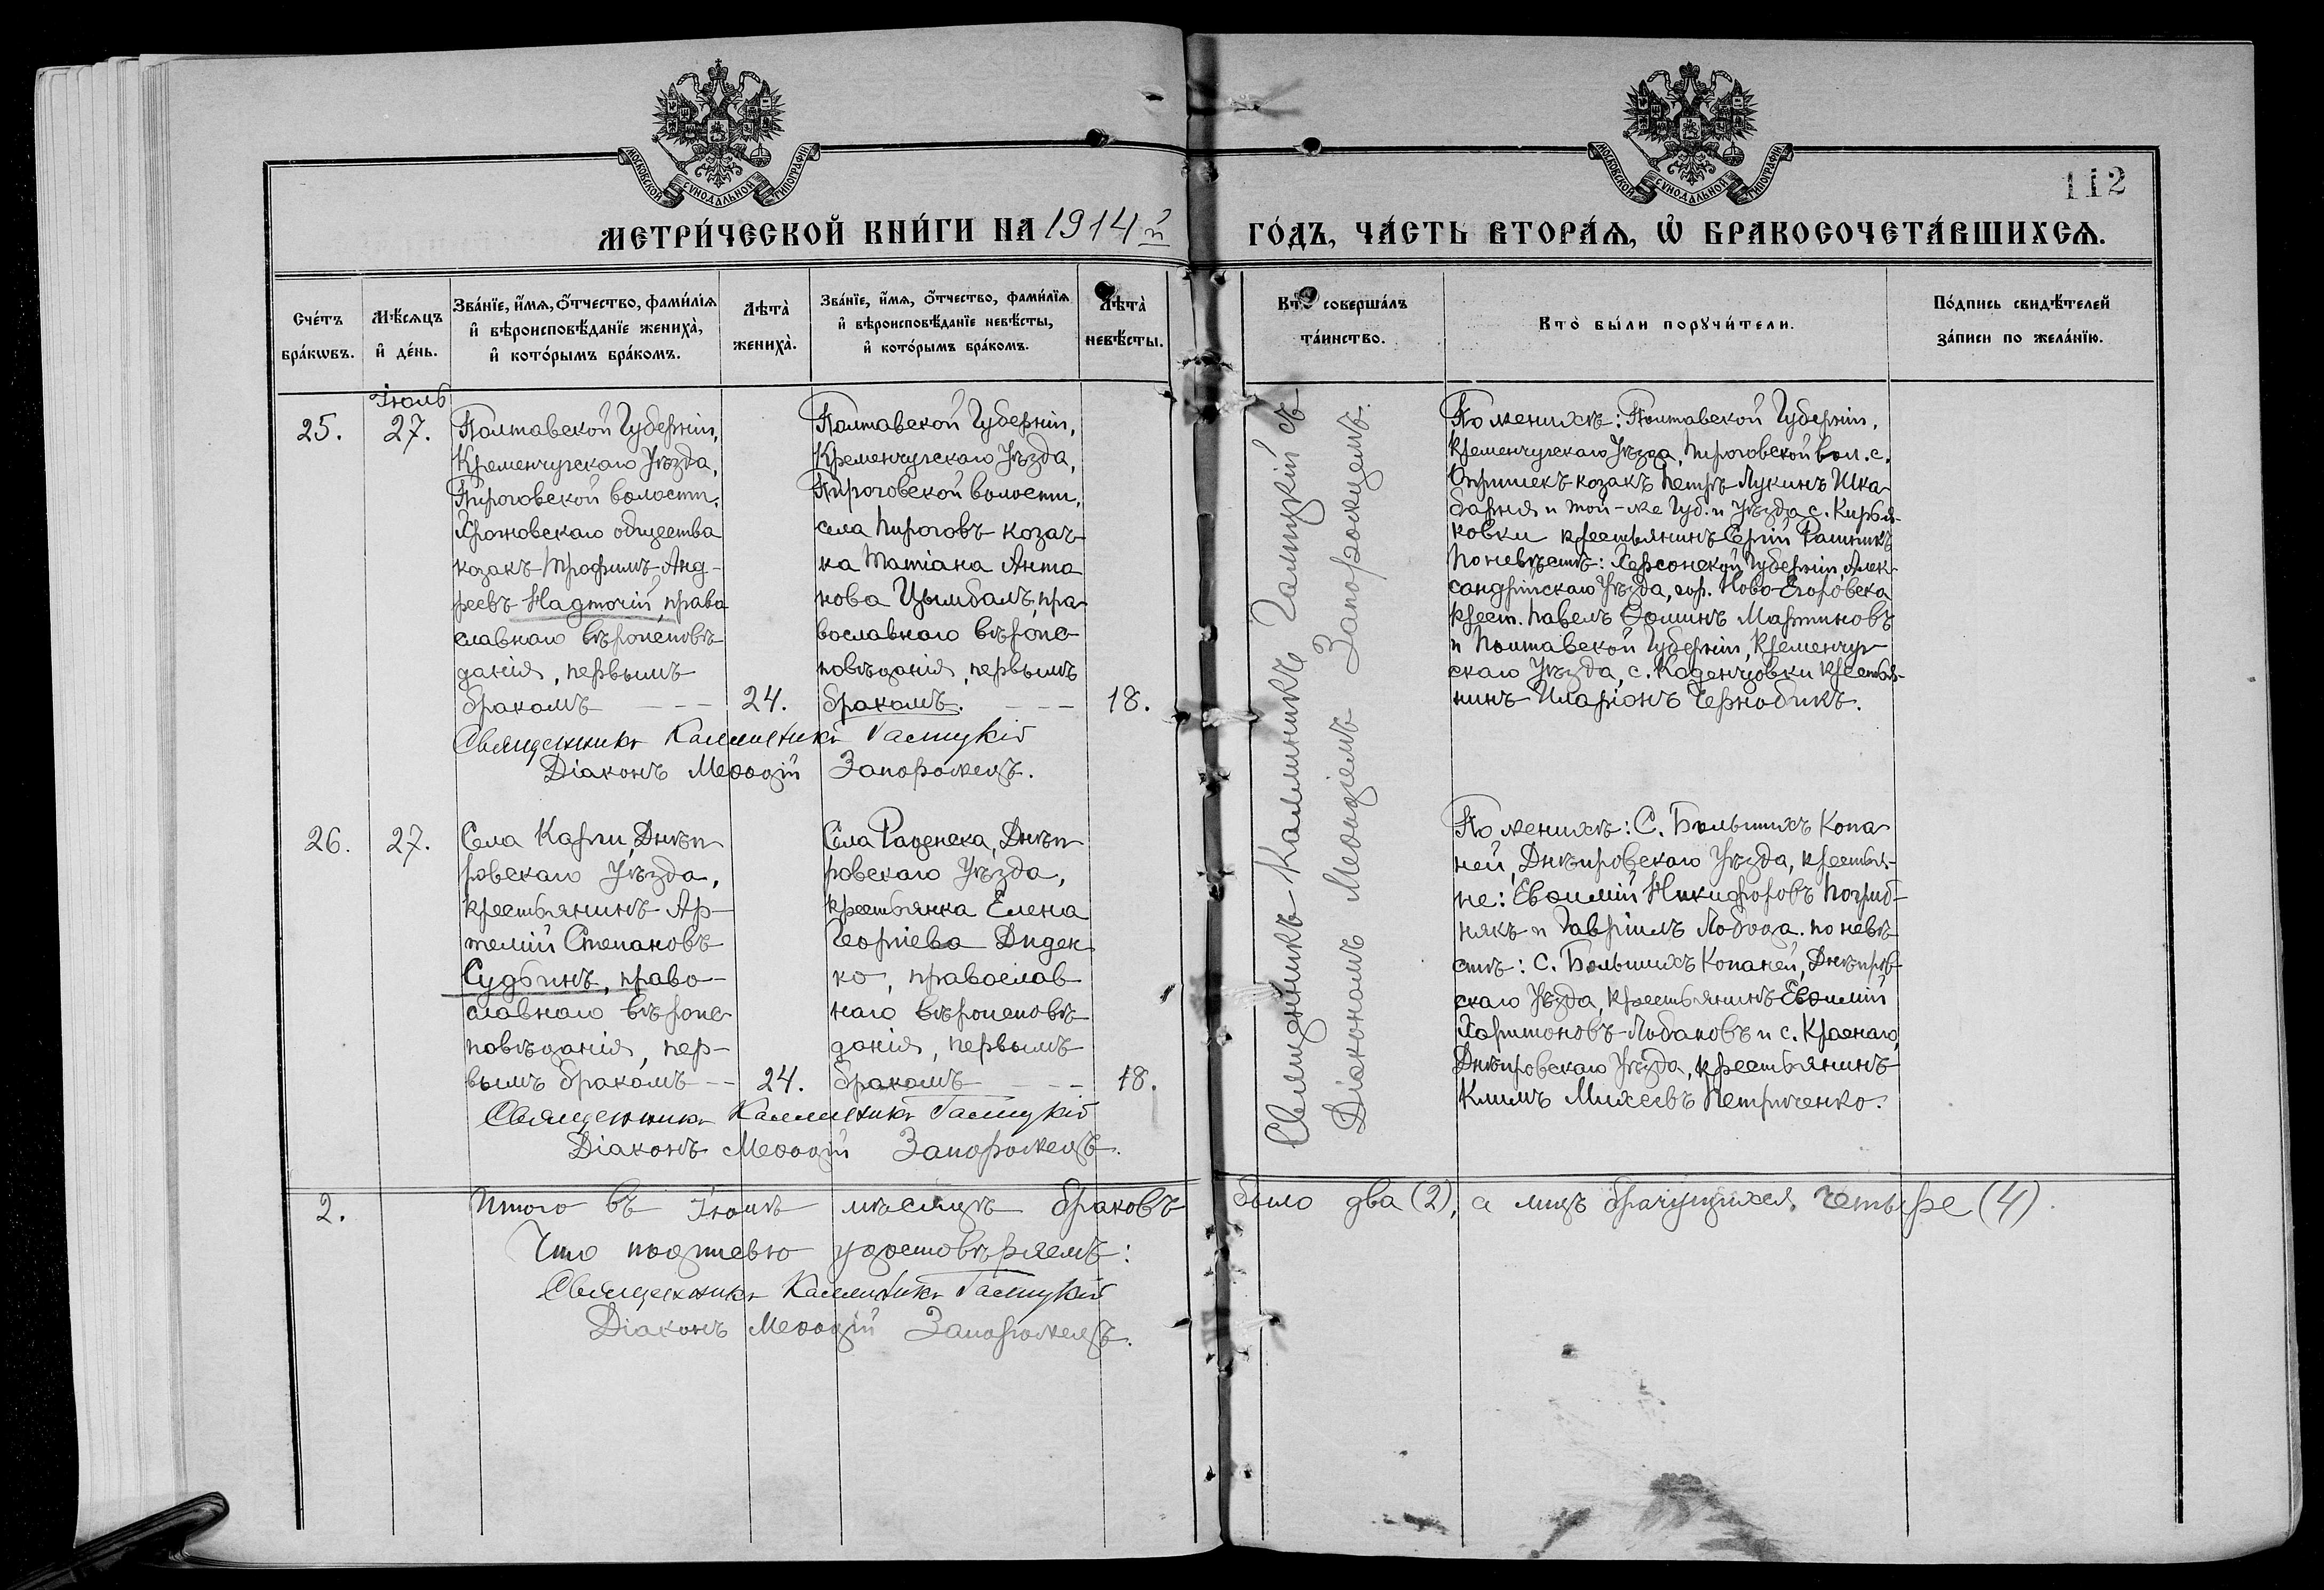 МОСКОВСКОЙ СѴНОДАЛЬНОЙ ТИПОГРАФІИ
МОСКОВСКОЙ СѴНОДАЛЬНОЙ ТИПОГРАФІИ
112
МЕТРИ́ЧЕСКОЙ КНИ́ГИ НА 1914 й
ГО́ДЪ, ЧА́СТЬ ВТОРА́Ѧ, Ѡ҆ БРАКОСОЧЕТА́ВШИХСѦ.
Сче́тъ
бра́кѡвъ.
Мѣ́сѧцъ
и҆ де́нь.
Зва́нїе, и҆́мѧ, ѻ҆́тчество, фами́лїѧ
и҆ вѣроисповѣ́данїе жениха̀,
и҆ кото́рымъ бра́комъ.
Лѣта̀
жениха̀.
Зва́нїе, и҆́мѧ, ѻ҆́тчество, фами́лїѧ
и҆ вѣроисповѣ́данїе невѣ́сты,
и҆ кото́рымъ бра́комъ.
Лѣта̀
невѣ́сты.
Кто̀ соверша́лъ
та́инство.
Кто̀ бы́ли порꙋчи́тели.
По́дпись свидѣ́телей
за́писи по жела́нїю.
25.
Іюль
27.
Полтавской Губерніи,
Кременчугскаго Уѣзда,
Пироговской волости,
общества
козакъ Трофимъ Анд-
реевъ Надточій, право
славнаго вѣроисповѣ
данія, первымъ
бракомъ
24.
Полтавской Губерніи,
Кременчугскаго Уѣзда,
Пироговской волости,
села Пироговъ козач-
ка Татіана Анто
нова Цымбалъ, пра-
вославнаго вѣроис-
повѣданія, первымъ
бракомъ.
18.
Священникъ Каллиникъ Галицкій
Діаконъ Меѳодій Запорожецъ.
Священникъ Каллиникъ Галицкій съ
Діакономъ Меѳодіемъ Запорожцемъ.
По женихѣ: Полтавской Губерніи,
Кременчугскаго Уѣзда, Пироговской вол. с.
козакъ Петръ Лукинъ Шка-
барня и той-же Губ. и Уѣзда с. Кирья-
ковки крестьянинъ Сергій
По невѣстѣ: Херсонской Губерніи, Алек-
сандрійскаго Уѣзда, гор. Ново-Егоровска
крест. Павелъ Ѳоминъ Мартиновъ
и Полтавской Губерніи, Кременчуг-
скаго Уѣзда, с. крестья-
нинъ Иларіонъ Чернобикъ.
26.
27.
Села Карги, Днѣп
ровскаго Уѣзда,
крестьянинъ Ар-
темій Степановъ
Судьинъ, право-
славнаго вѣроис-
повѣданія, пер-
вымъ бракомъ
24.
Села Раденска, Днѣп
ровскаго Уѣзда,
крестьянка Елена
Георгіева Диден
ко, православ
наго вѣроисповѣ
данія, первымъ
бракомъ
18.
Священникъ Каллиникъ Галицкій
Діаконъ Меѳодій Запорожецъ.
По женихѣ: С. Большихъ Копа
ней, Днѣпровскаго Уѣзда, крестья-
не: Евѳимій Никифоровъ Погриб-
някъ и Гавріилъ Лобода. по невѣ
стѣ: С. Большихъ Копаней, Днѣпров
скаго Уѣзда, крестьянинъ Евѳимій
Харитоновъ Лобановъ и с. Краснаго,
Днѣпровскаго Уѣзда, крестьянинъ
Климъ Михеевъ Петриченко.
2.
Итого въ Іюлѣ мѣсяцѣ браковъ было два (2), а лицъ брачущихся четыре (4).
Что подписью удостовѣряемъ:
Священникъ Каллиникъ Галицкій
Діаконъ Меѳодій Запорожецъ.